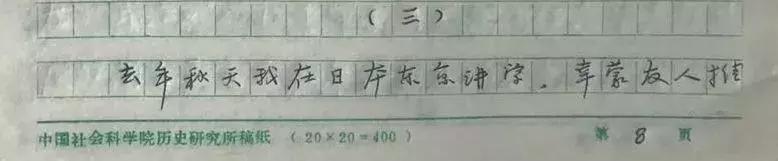 （三）
去年秋天我在日本东京讲学，幸蒙友人推
中国社会科学院历史研究所稿纸 （20×20=400） 第 8 页